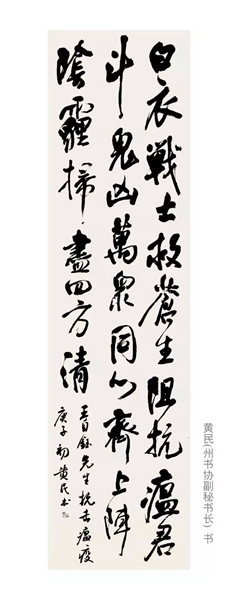 白衣戰士救蒼生阻抗瘟君
斗鬼凶萬衆同心齊上陣
陰霾掃盡四方清
王日先生抗击瘟疫
庚子初黄民书
黄民(州书协副秘书长) 书